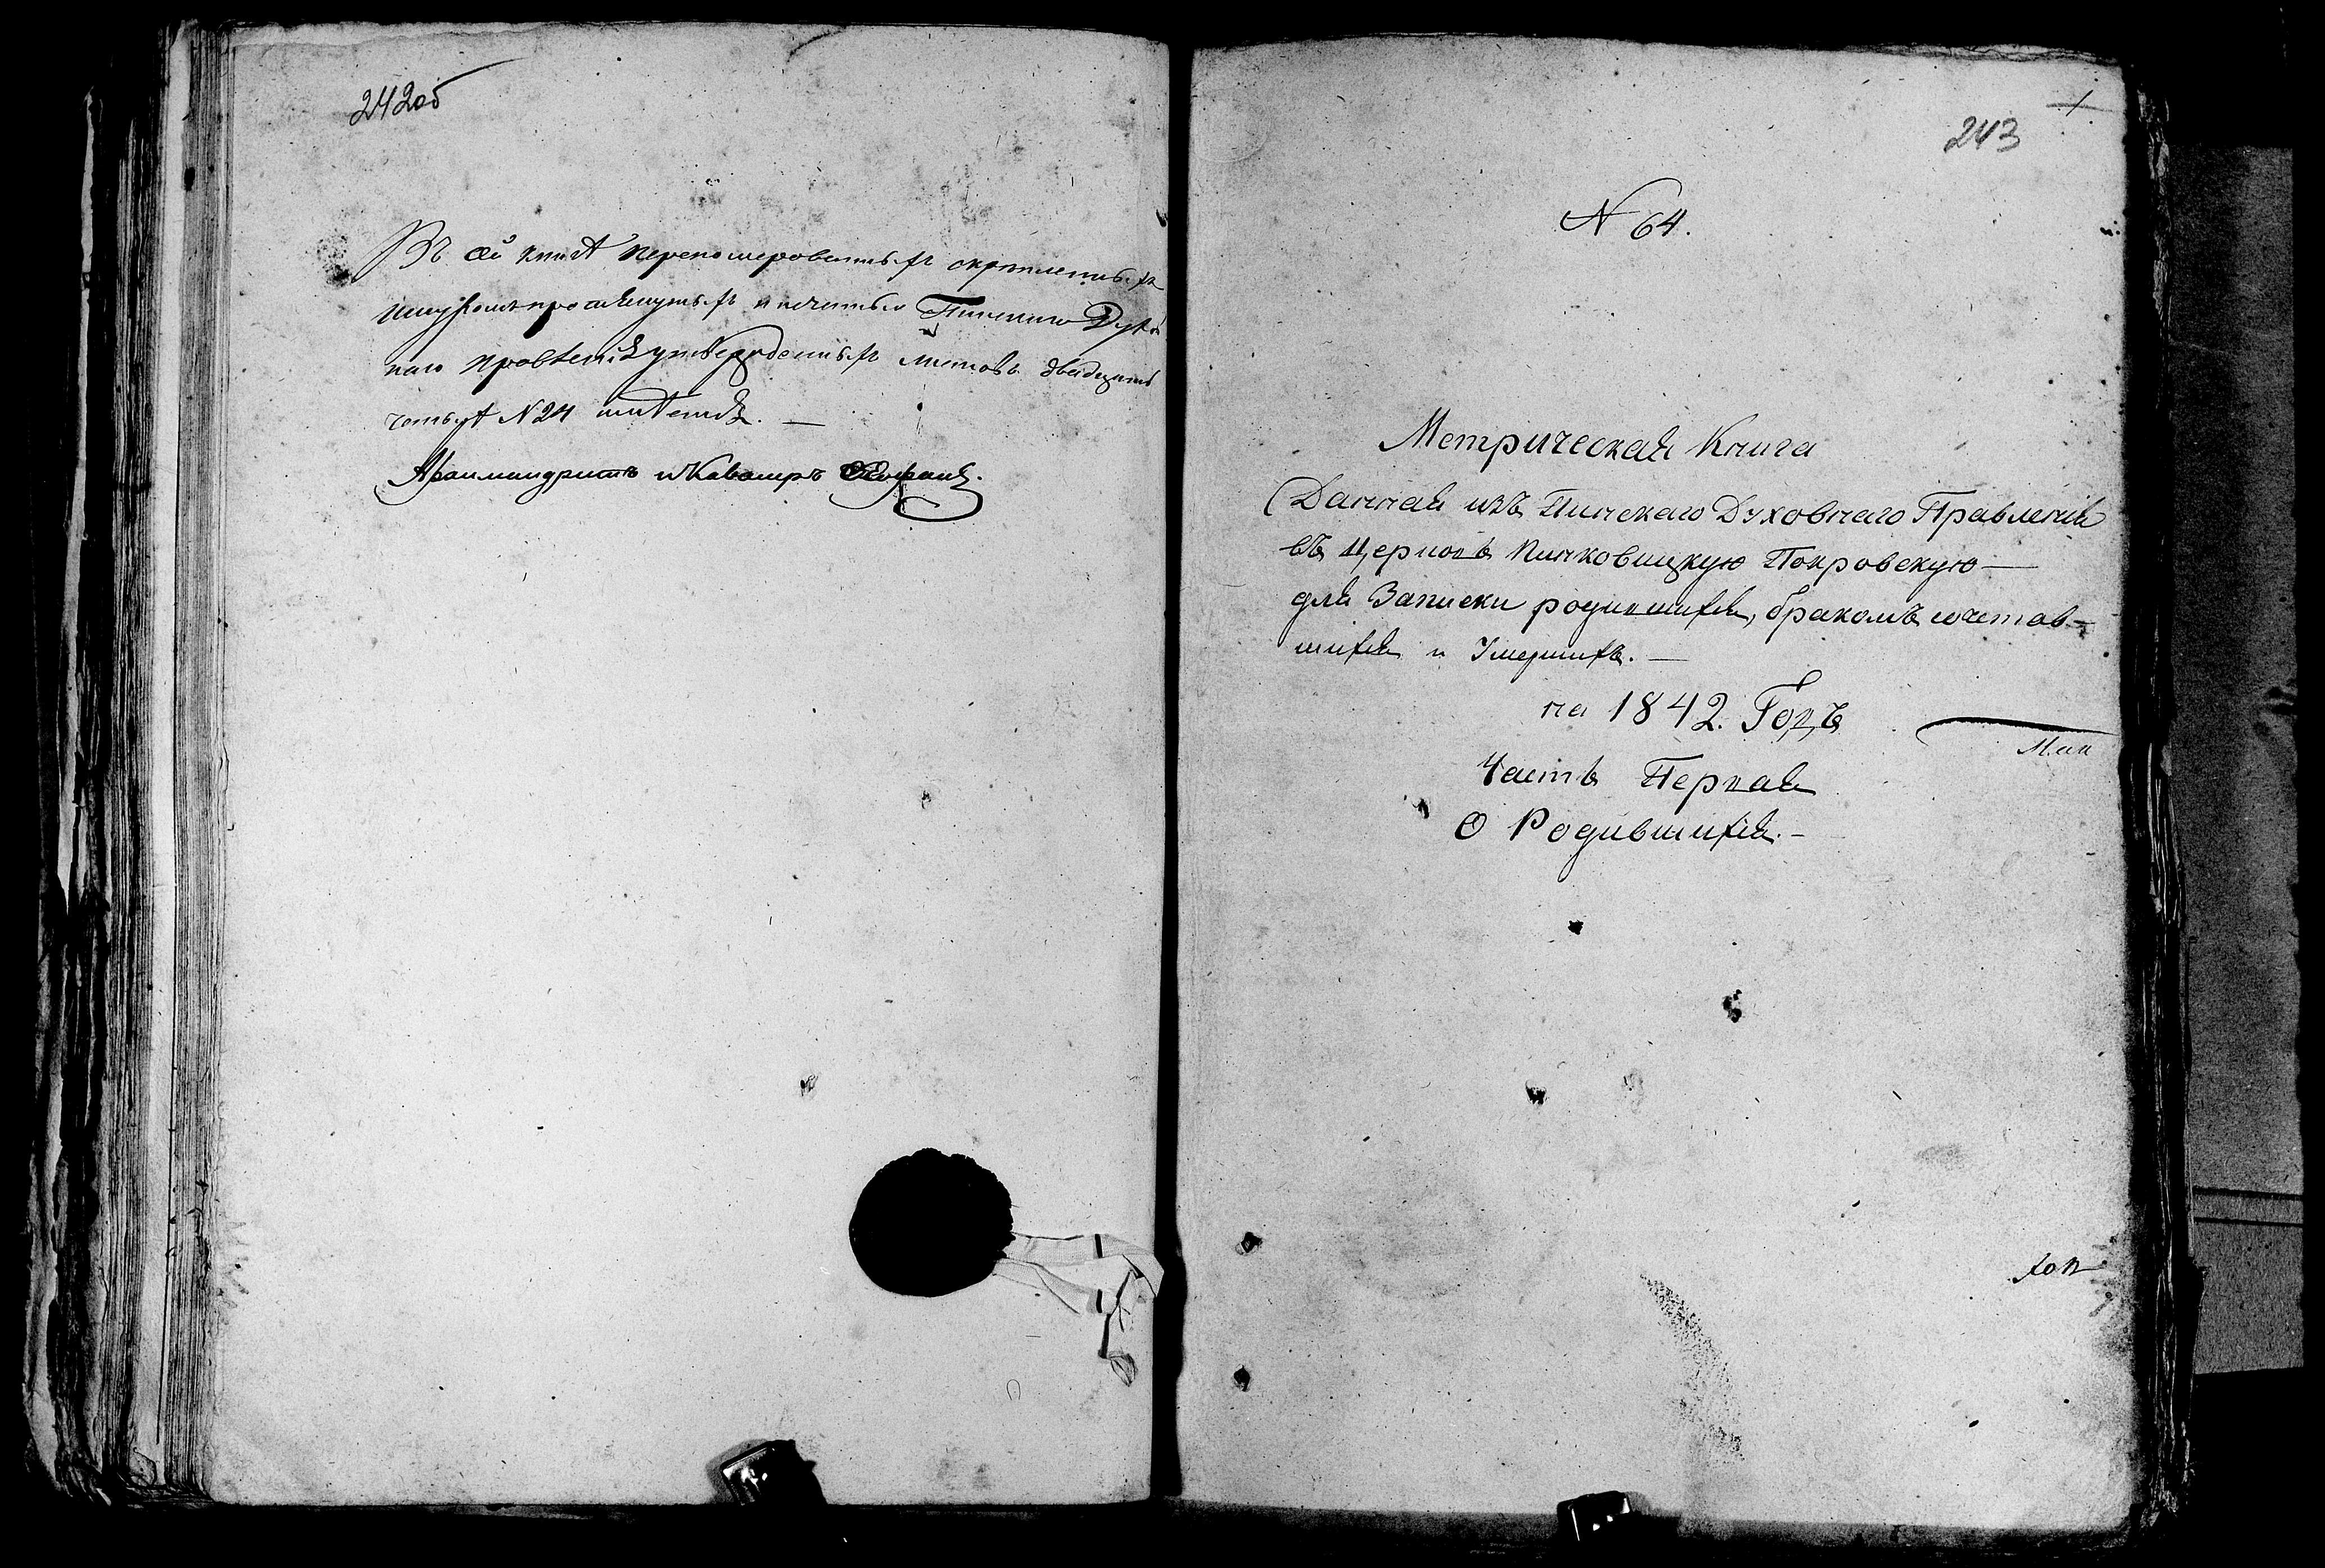 242об
Въ сей книгѣ перономерованныхъ скрѣпленныхъ
шнуромъ протянутыхъ и печатью Пинскаго Духов
наго Правленія утвержденныхъ листовъ двадцать
четыре N 24 имѣется. —
Архимандритъ и Кавалеръ
1
243
N 64.
Метрическая Книга
Данная изъ Пинскаго Духовнаго Правленія
въ Церковь Пинковицкую Покровскую —
для Записки родившихся, бракомъ сочетав-
шихся и Умершихъ. —
на 1842. Годъ
Часть Первая
О Родившихся. —